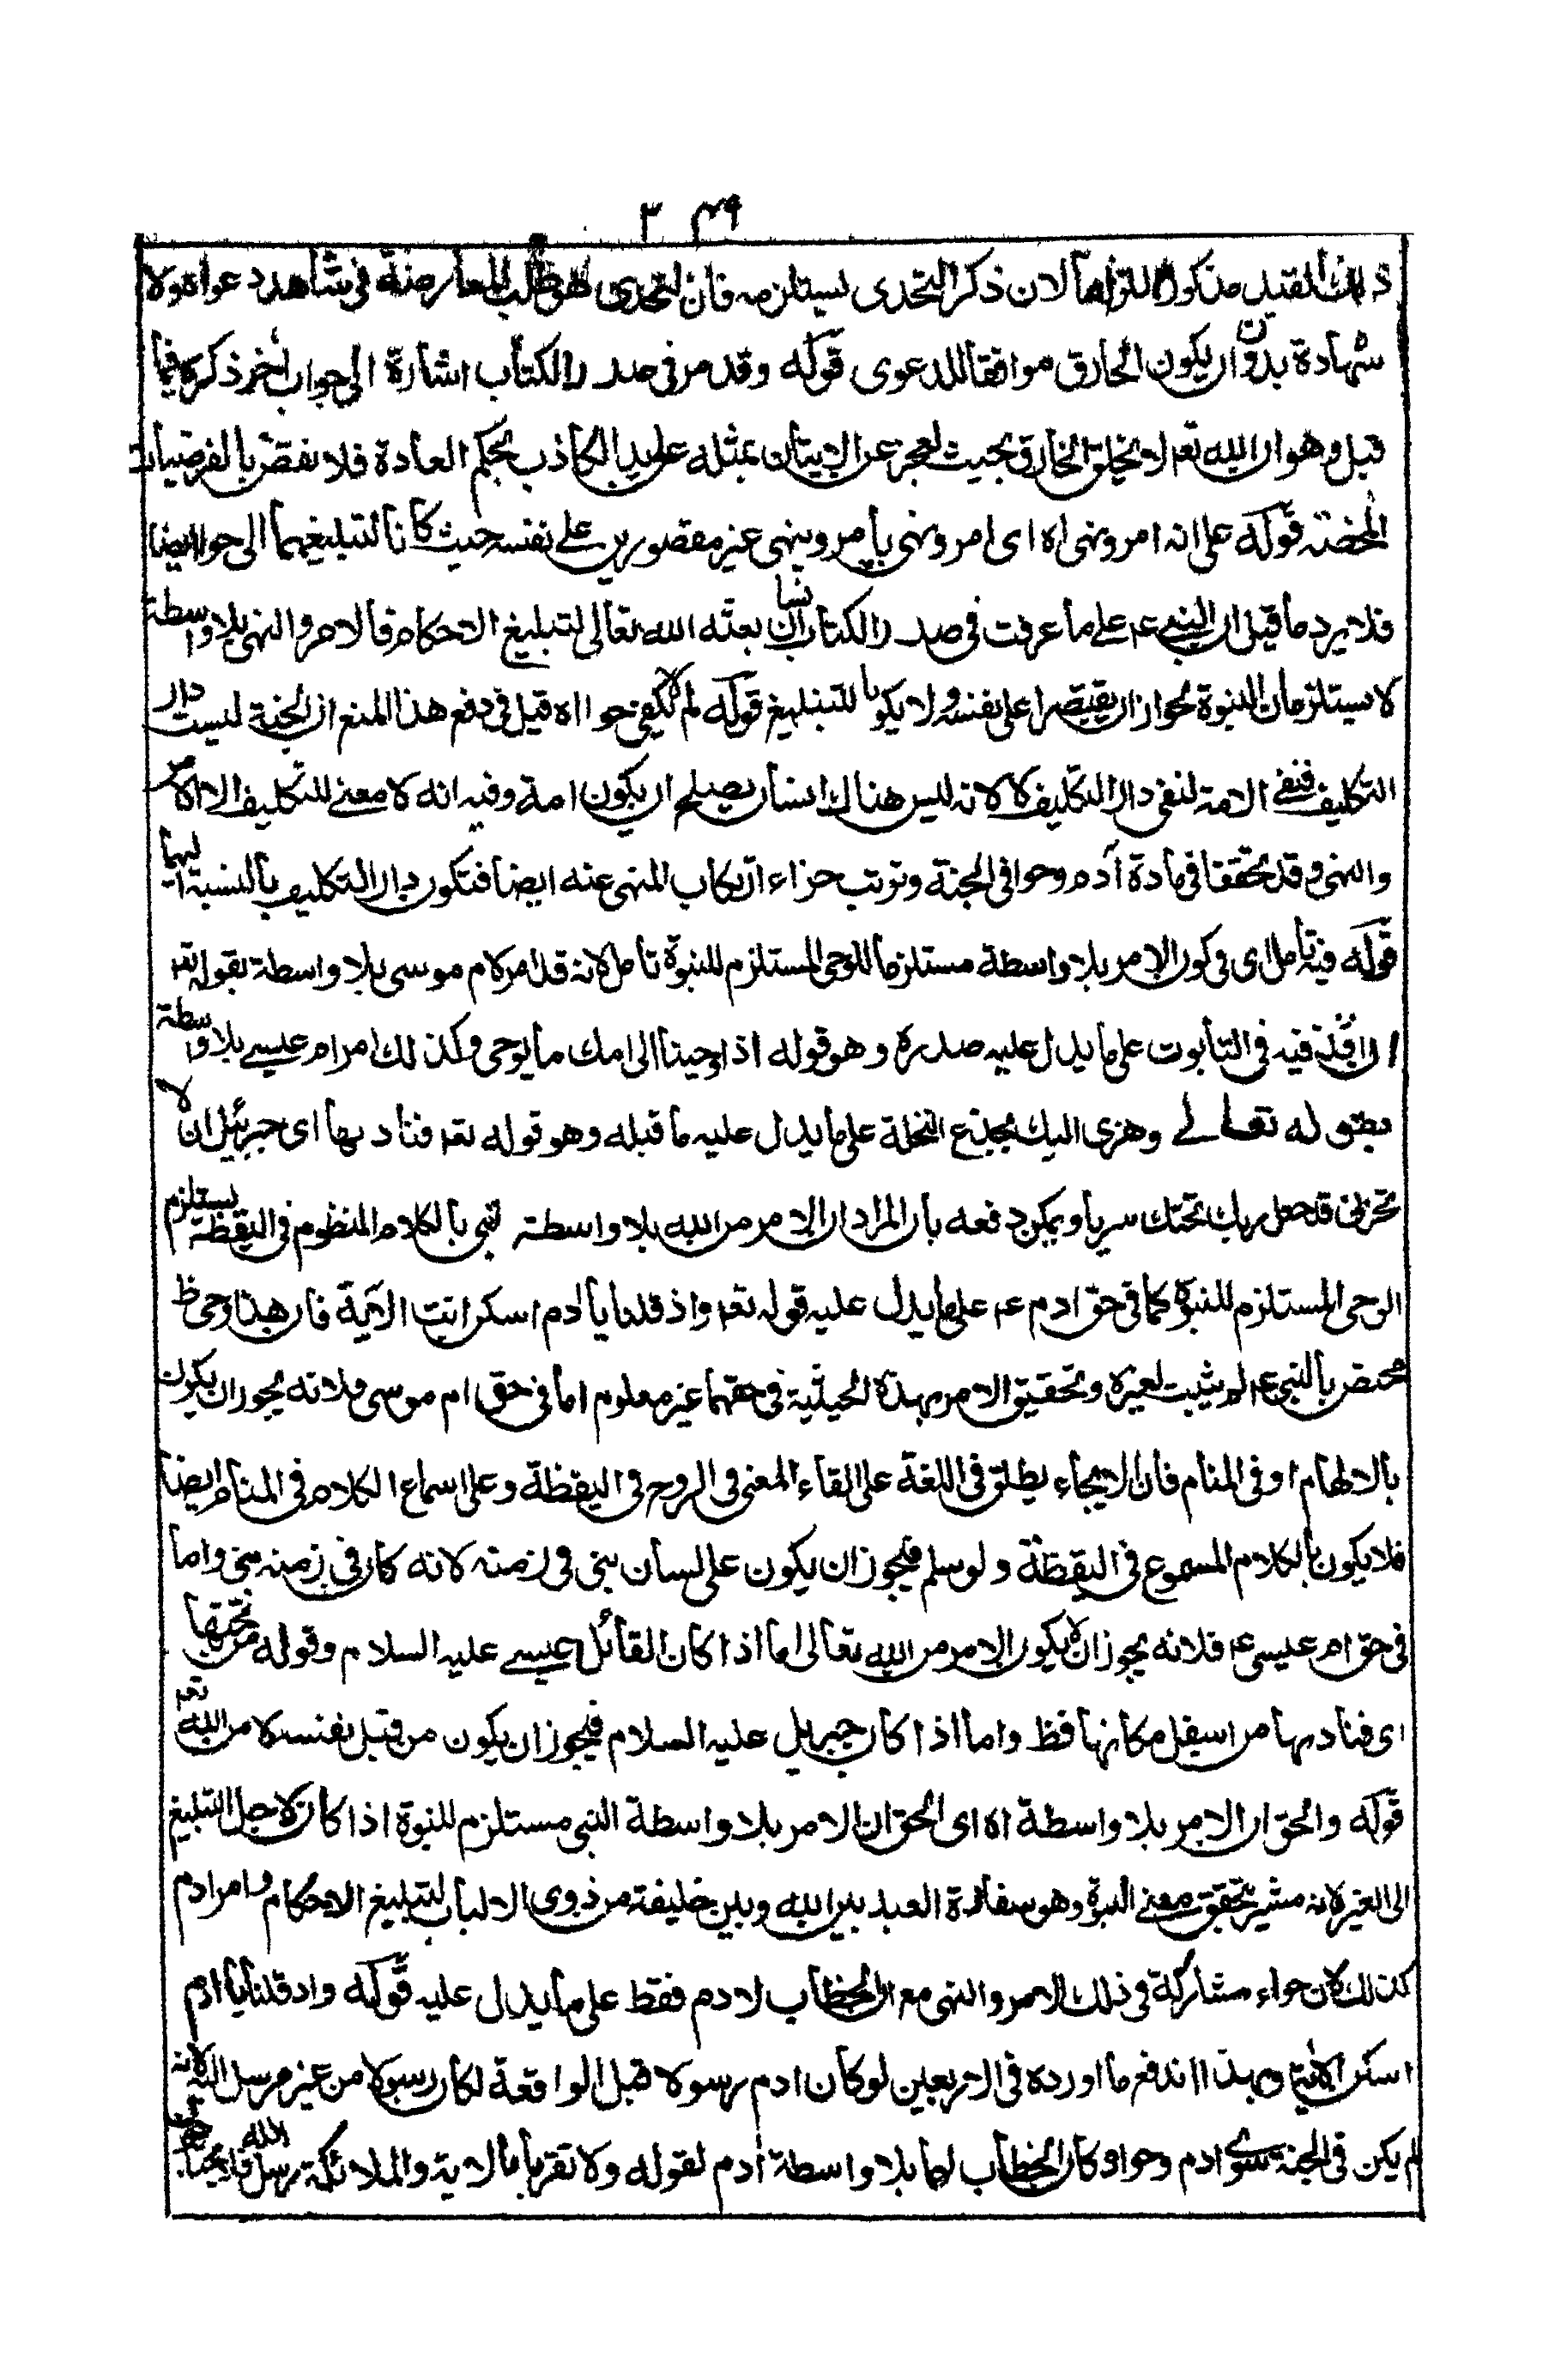 ٣٤٩
ذلك القيل مذكور التزاما لان ذكر التحدى يستلزمه فان التحدى هو طلب المعارضة فى شاهد دعواه ولا
شهادة بدون ان يكون الخارق موافقا للدعوى قوله وقد مر فى صدر الكتاب اشارة الى جواب اخر ذكره فيما
قبل وهو ان الله تعه لا يخلق الخارق بحيث يعجز عن الاتيان بمثله على يد الكاذب بحكم العادة فلا نقض بالفرضيات
المحضة قوله على انه امر ونهى اه اى امر ونهى بامر ونهى غير مقصورين على نفسه حيث كانا لتبليغهما الى حوا ايضا
فلا يرد ما قيل ان النبى عم على ما عرفت فى صدر الكتاب انسان بعثه الله تعالى لتبليغ الاحكام فالامر والنهى بلا واسطة
لا يستلزمان النبوة لجواز ان يقتصرا على نفسه ولا يكونا للتبليغ قوله لم لا يكفى حوا اه قيل فى دفع هذا المنع ان الجنة ليست دار
التكليف فنفى الامة لنفى دار التكليف لا لانه ليس هناك انسان يصلح ان يكون امة وفيه انه لا معنى للتكليف الا الامر
والنهى وقد تحققا فى مادة آدم وحوا فى الجنة وترتب جزاء ارتكاب المنهى عنه ايضا فتكون دار التكليف بالنسبة اليهما
قوله فيه تامل اى فى كون الامر بلا واسطة مستلزما للوحى المستلزم للنبوة تامل لانه قد امر ام موسى بلا واسطة بقوله تعه
ان اقذفيه فى التابوت على ما يدل عليه صدره وهو قوله اذ اوحينا الى امك ما يوحى وكذلك امر ام عيسى بلا واسطة
بقوله تعالى وهزى اليك بجذع النخلة على ما يدل عليه ما قبله وهو قوله تعه فناديها اى جبرئيل ان لا
تحزنى قد جعل ربك تحتك سريا ويمكن دفعه بان المراد ان الامر من الله بلا واسطة نبى بالكلام المنظوم فى اليقظة يستلزم
الوحى المستلزم للنبوة كما فى حق ادم عم على ما يدل عليه قوله تعه واذ قلنا يا ادم اسكن انت الآية فان هذا وحى ظ
مختص بالنبى عم لم يثبت لغيره وتحقيق الامر بهذه الحيثية فى حقهما غير معلوم اما فى حق ام موسى فلانه يجوز ان يكون
بالالهام او فى المنام فان الايحاء يطلق فى اللغة على القاء المعنى فى الروح فى اليقظة وعلى اسماع الكلام فى المنام ايضا
فلا يكون بالكلام المسموع فى اليقظة ولو سلم فيجوز ان يكون على لسان نبى فى زمنه لانه كان فى زمنه نبى واما
فى حق ام عيسى عم فلانه يجوز ان لا يكون الامر من الله تعالى اما اذا كان القائل عيسى عليه السلام وقوله من تحتها
اى فناديها من اسفل مكانها فظ واما اذا كان جبريل عليه السلام فيجوز ان يكون من قبل نفسه لا من الله تعه
قوله والحق ان الامر بلا واسطة اه اى الحق ان الامر بلا واسطة النبى مستلزم للنبوة اذا كان لاجل التبليغ
الى الغير لانه تحقق معنى النبوة وهو سفارة العبد بين الله وبين خليفة من ذوى الالباب لتبليغ الاحكام وامر ادم
كذلك لان حواء مشاركة فى ذلك الامر والنهى مع ان الخطاب لادم فقط على ما يدل عليه قوله واذ قلنا يا ادم
اسكن الآية وبهذا اندفع ما اورده فى الاربعين لو كان ادم رسولا قبل الواقعة لكان رسولا من غير مرسل اليه لانه
لم يكن فى الجنة سوى ادم وحوا وكان الخطاب لهما بلا واسطة ادم لقوله ولا تقربا بالاية والملائكة رسل الله